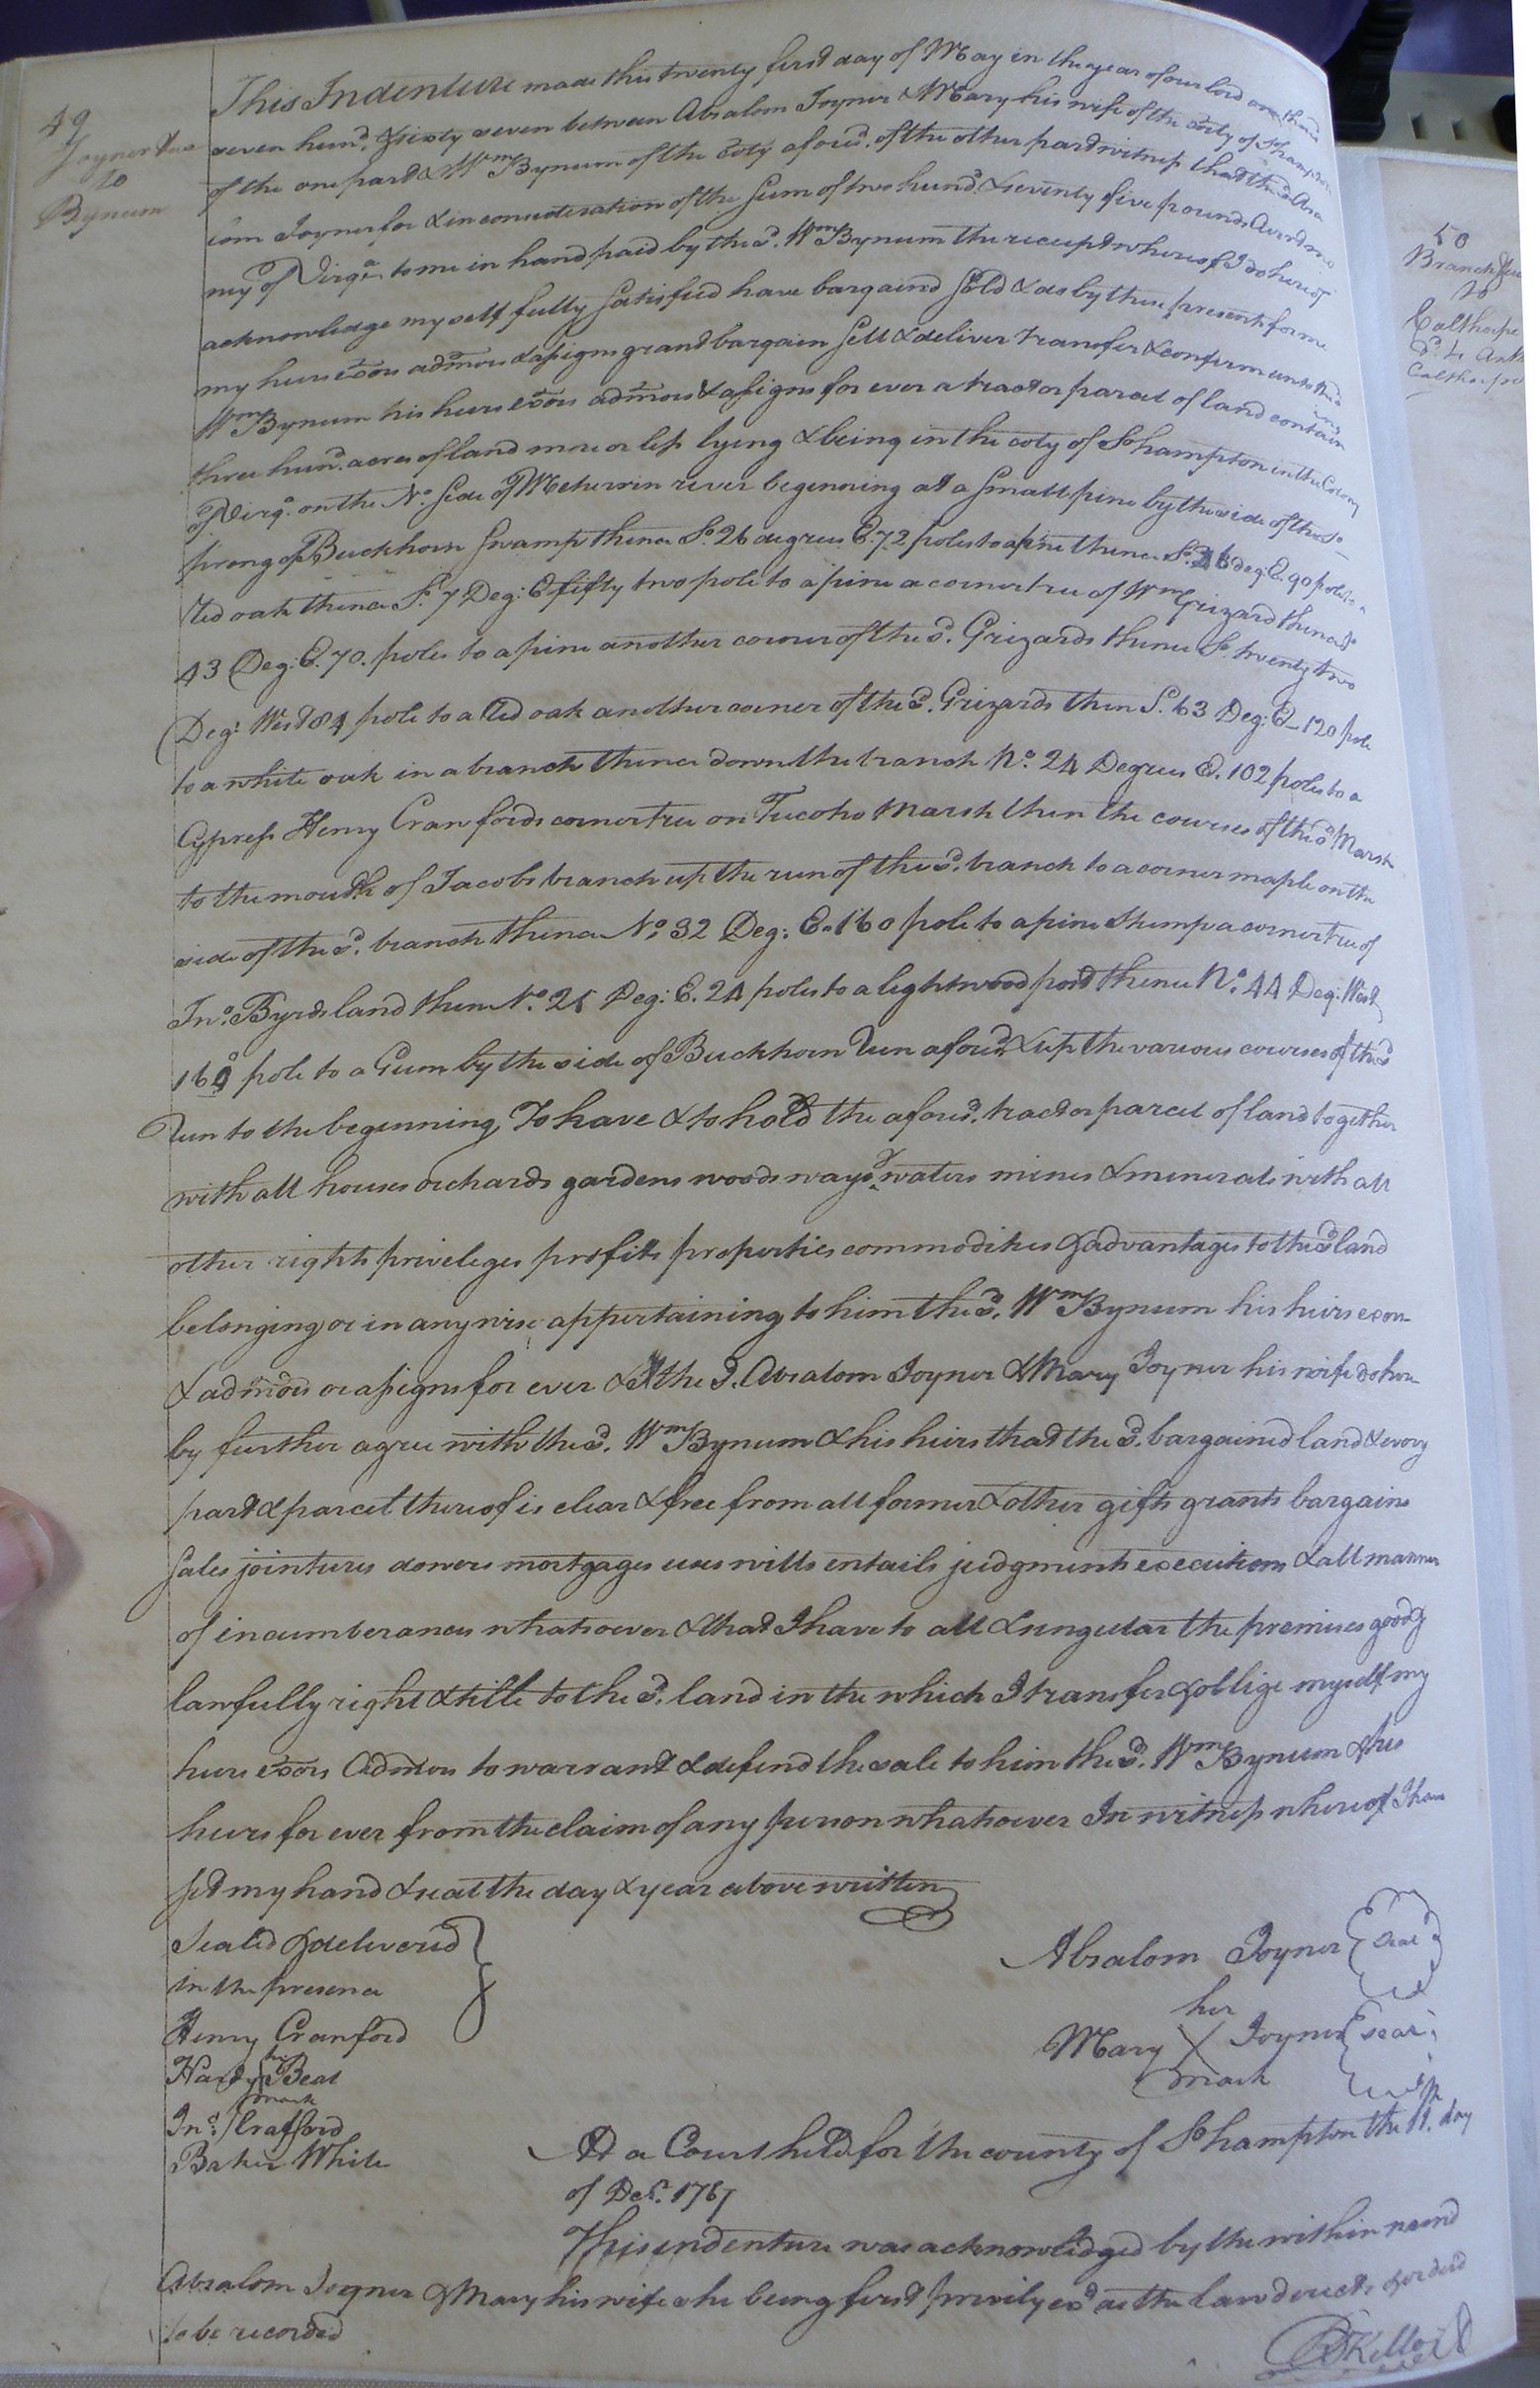 49
Joyner &ux
to
Bynum
This Indenture made this twenty first day of May in the year of our lord one thousd
seven hund. & sixty seven between Absalom Joyner & Mary his wife of the coty of Shampton
of the one part & Wm Bynum of the coty aforsd. of the other part witness that the sd. Absa
lom Joyner for & in consideration of the sum of two hund. & seventy five pounds Currt. mo
ney of Virga. to me in hand paid by the sd. Wm Bynum the receipt whereof I do hereby
acknowledge myself fully satisfied have bargaind sold & do by these presents for me
my heirs exors admors & assigns grant bargain sell & deliver transfer & confirm unto the sd
Wm Bynum his heirs exors admors & assigns for ever a tract or parcel of land containing
three hund. acres of land more or less lying & being in the coty of Shampton in the Colony
of Virga. on the No. side of Meherrin river beginning at a small pine by the side of the So.
prong of Buckhorn Swamp thence So. 26 degrees E. 72 poles to a pine thence So. deg: E. 90 pole to a
Red oak thence S. 7 Deg: E fifty two pole to a pine a corner tree of Wm Grizard thence So
43 Deg: E. 70. poles to a pine another corner of the sd. Grizards thence So. twenty two
Deg: West 84 pole to a Red oak another corner of the sd. Grizards then S. 63 Deg: E 120 pole
to a white oak in a branch thence down the branch No. 24 Degrees E. 102 poles to a
Cypress Henry Crawfords corner tree on Tucoho Marsh then the courses of the sd Marsh
to the mouth of Jacobs branch up the run of the sd. branch to a corner maple on the
side of the sd. branch thence No. 32 Deg: E. 160 pole to a pine stump a corner tree of
Jno. Byrds land then No. 25 Deg: E. 24 poles to a lightwood post thence No. 44 Deg: West
160 pole to a Gum by the side of Buckhorn Run aforsd. & up the various courses of the sd
Run to the beginning To have & to hold the aforsd. tract or parcel of land together
with all houses orchards gardens woods ways & waters mines & minerals with all
other rights priveleges profits properties commodities & advantages to the sd land
belonging or in any wise appertaining to him the sd. Wm Bynum his heirs exors
& admors or assigns for ever & I the sd. Absalom Joyner & Mary Joyner his wife do here
by further agree with the sd. Wm Bynum & his heirs that the sd. bargained land & every
part & parcel thereof is clear & free from all former & other gifts grants bargains
sales jointures dowers mortgages uses wills entails judgments executions & all manner
of incumberances whatsoever & that I have to all & singular the premises good &
lawfully right & title to the sd. land in the which I transfer & oblige myself my
heirs exors Admors to warrant & defend the sale to him the sd. Wm Bynum & his
heirs for ever from the claim of any person whatsoever In witness whereof I have
set my hand & seal the day & year above written
Sealed & delivered
in the presence
Henry Crawford
his
Hardy Beal
mark
Jno. Crafford
Baker White
Absalom Joyner Seal
her
Mary X Joyner seal
mark
At a Court held for the county of Shampton the day
of Decr. 1767
This indenture was acknowledged by the within named
Absalom Joyner & Mary his wife she being first privily exd as the law directs & ordered
to be recorded
RKello
50
Branch
to
Calthorpe
Calthorpe